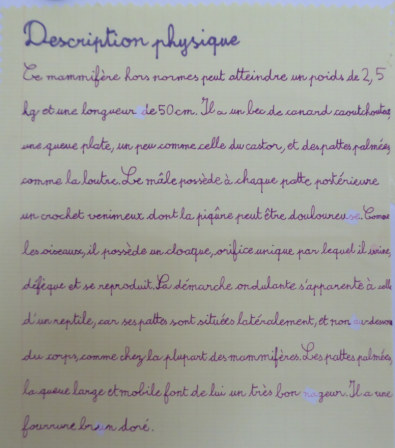 Description physique
Ce mammifère hors normes peut atteindre un poids de 2,5
kg et une longueur de 50 cm. Il a un bec de canard caoutchouteux,
une queue plate, un peu comme celle du castor, et des pattes palmées
comme la loutre. Le mâle possède à chaque patte postérieure
un crochet venimeux dont la piqûre peut être douloureuse. Comme
les oiseaux, il possède un cloaque, orifice unique par lequel il urine,
défèque et se reproduit. Sa démarche ondulante s'apparente à celle
d'un reptile, car ses pattes sont situées latéralement, et non en dessous
du corps, comme chez la plupart des mammifères. Ses pattes palmées,
la queue large et mobile font de lui un très bon nageur. Il a une
fourrure brun doré.